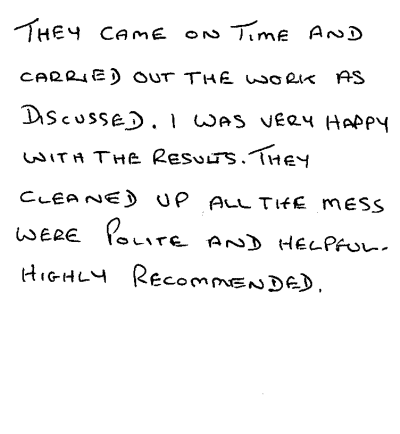 THEY CAME ON TIME AND
CARRIED OUT THE WORK AS
DISCUSSED. I WAS VERY HAPPY
WITH THE RESULTS. THEY
CLEANED UP ALL THE MESS
WERE POLITE AND HELPFUL.
HIGHLY RECOMMENDED.